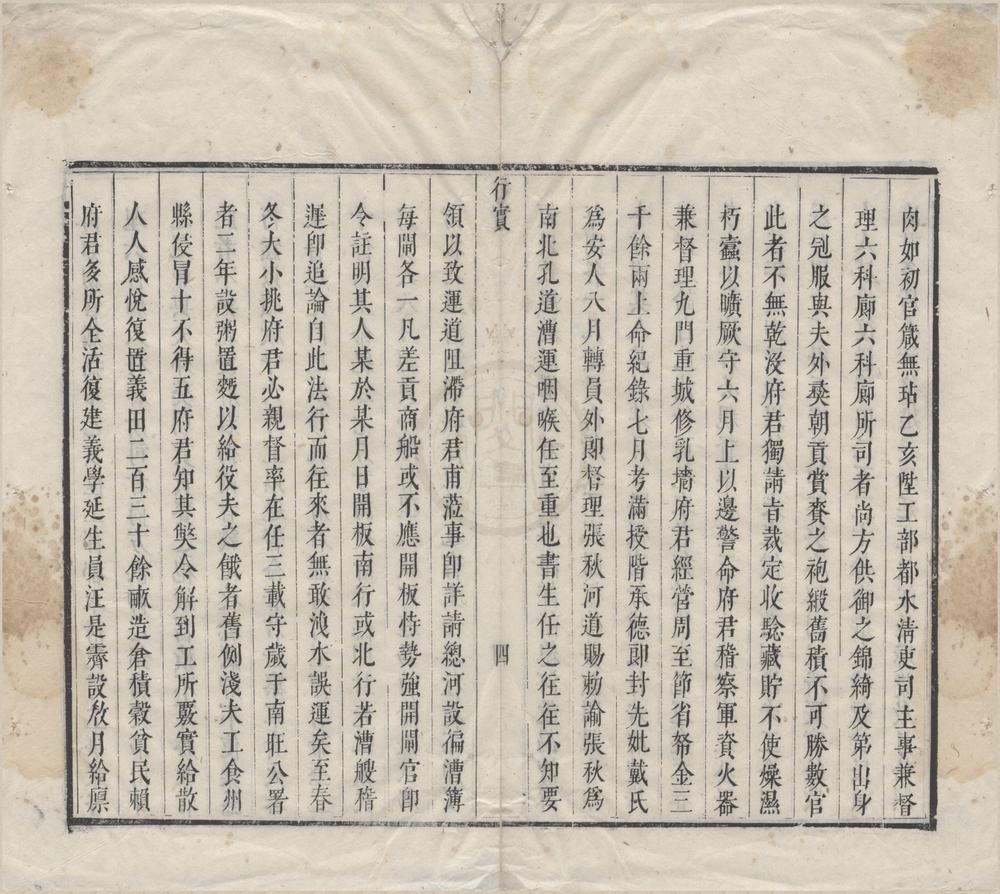 肉如初官箴無玷乙亥陞工部都水清吏司主事兼督
理六科廊六科廊所司者尚方供御之錦綺及第出身
之冠服與夫外獘朝貢賞賚之袍緞舊積不可勝數官
此者不無乾沒府君獨請旨裁定收驗藏貯不使燥濕
朽蠹以曠厥守六月上以邊警命府君稽察軍資火器
兼督理九門重城修乳墻府君經營周至節省帑金三
千餘兩上命紀錄七月考滿授階承德郎封先妣戴氏
為安人八月轉員外郎督理張秋河道賜勅諭張秋為
南北孔道漕運咽喉任至重也書生任之往往不知要
行實
四
領以致運道阻滯府君甫蒞事即詳請總河設徧漕簿
每閘各一凡差貢商船或不應開板恃勢強開閘官即
令註明其人某於某月日開板南行或北行若漕艘稽
遲即追論自此法行而往來者無敢洩水誤運矣至春
冬大小挑府君必親督率在任三載守歲于南旺公署
者二年設粥置麪以給役夫之餓者舊例淺夫工食州
縣侵冒十不得五府君知其獘令解到工所覈實給散
人人感悅復置義田二百三十餘畝造倉積穀貧民賴
府君多所全活復建義學延生員汪是霽設敎月給廪